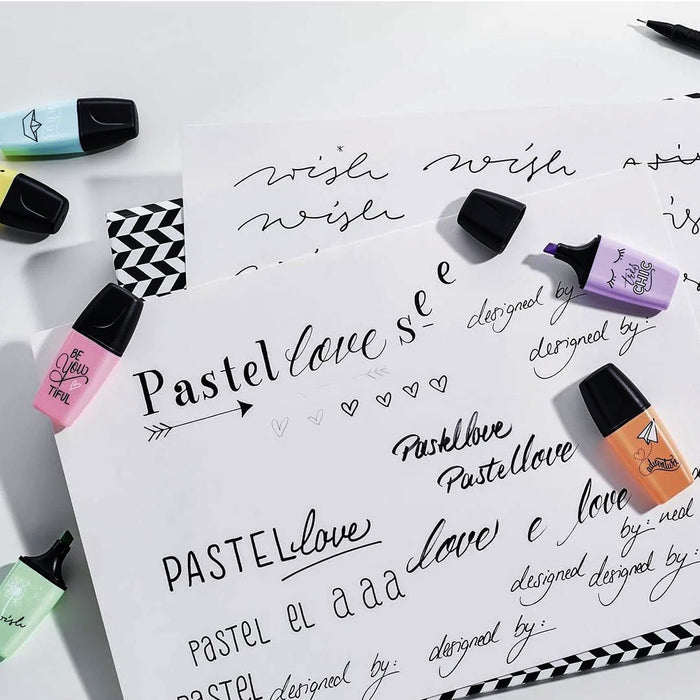 *
wish wish wish
wish
Pastel love see
designed by
designed by:
très
CHIC
BE
YOU
TIFUL
adventure
Pastellove
Pastellove
PASTEL love love e love
by: ned
pastel el a a a
designed designed by:
PASTEL designed by: designed by:
wish